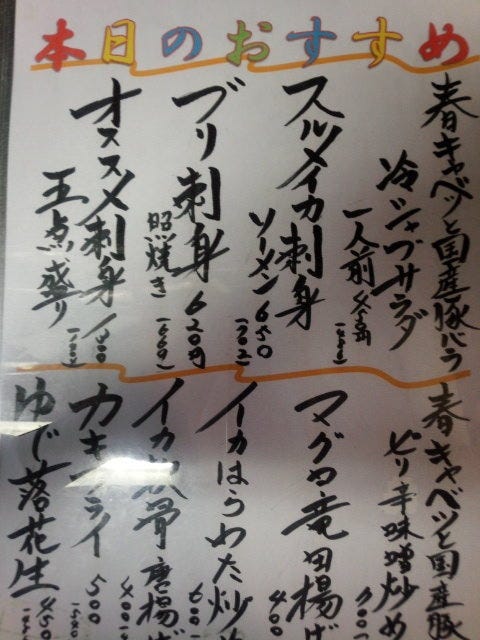 本日のおすすめ
春キャベツと国産豚バラ
冷シャブサラダ
一人前
スルメイカ刺身
ソーメン 650
ブリ刺身 620円
照焼き
オススメ刺身
五点盛り
春キャベツと国産豚
ピリ辛味噌炒め
マグロ竜田揚げ
400
イカはらわた炒め
600
イカ軟骨唐揚げ
400
カキフライ
500
ゆで落花生
450